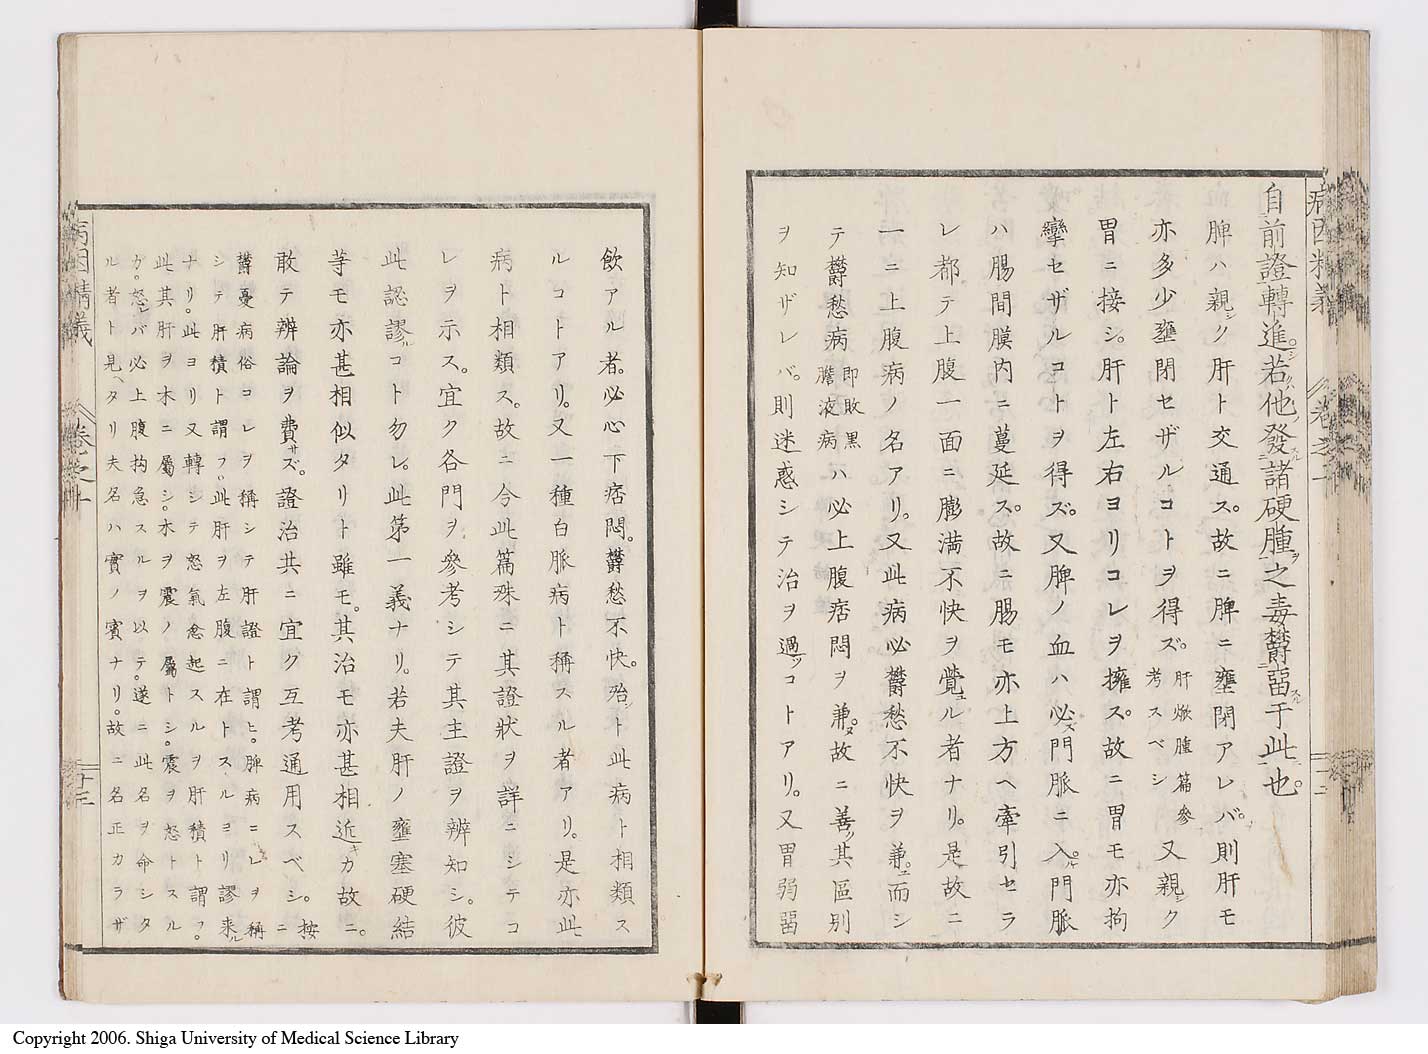 病因精義
卷之二
十二
自前證轉進シ。若クハ他ノ發スル諸硬腫ニ之毒ヲ欝畱スル于此ニ也。
脾ハ親シク肝ト交通ス。故ニ脾ニ壅閉アレバ。則肝モ
亦多少壅閉セザルコトヲ得ズ。肝焮腫篇參考スベシ又親シク
胃ニ接シ。肝ト左右ヨリコレヲ擁ス。故ニ胃モ亦拘
攣セザルコトヲ得ズ。又脾ノ血ハ必ズ門脈ニ入ル。門脈
ハ腸間膜内ニ蔓延ス。故ニ腸モ亦上方ヘ牽引セラ
レ都テ上腹一面ニ膨満不快ヲ覺ユル者ナリ。是故ニ
一ニ上腹病ノ名アリ。又此病必欝愁不快ヲ兼ユ。而シ
テ欝愁病即敗黒膽液病ハ必上腹痞悶ヲ兼ヌ。故ニ善ク其區別
ヲ知ザレバ。則迷惑シテ治ヲ過ツコトアリ。又胃弱畱
飲アル者。必心下痞悶。欝愁不快。殆ント此病ト相類ス
ルコトアリ。又一種白脈病ト稱スル者アリ。是亦此
病ト相類ス。故ニ今此篇殊ニ其證狀ヲ詳ニシテコ
レヲ示ス。宜ク各門ヲ參考シテ其主證ヲ辨知シ。彼
此認謬ルコト勿レ。此第一義ナリ。若夫肝ノ壅塞硬結
等モ亦甚相似タリト雖モ。其治モ亦甚相近カ故ニ。
敢テ辨論ヲ費サズ。證治共ニ宜ク互考通用スベシ。按ニ
欝憂病俗コレヲ稱シテ肝證ト謂ヒ。脾病コレヲ稱
シテ肝積ト謂フ。此肝ヲ左腹ニ在トスルヨリ謬来ル
ナリ。此ヨリ又轉シテ怒氣忿起スルヲ肝積ト謂フ。
此其肝ヲ木ニ屬シ。木ヲ震ノ屬トシ。震ヲ怒トスル
ガ。怒レバ必上腹拘急スルヲ以テ。遂ニ此名ヲ命シタ
ル者ト見ヘタリ夫名ハ實ノ賓ナリ。故ニ名正カラザ
病因精義
十三
Copyright 2006. Shiga University of Medical Science Library